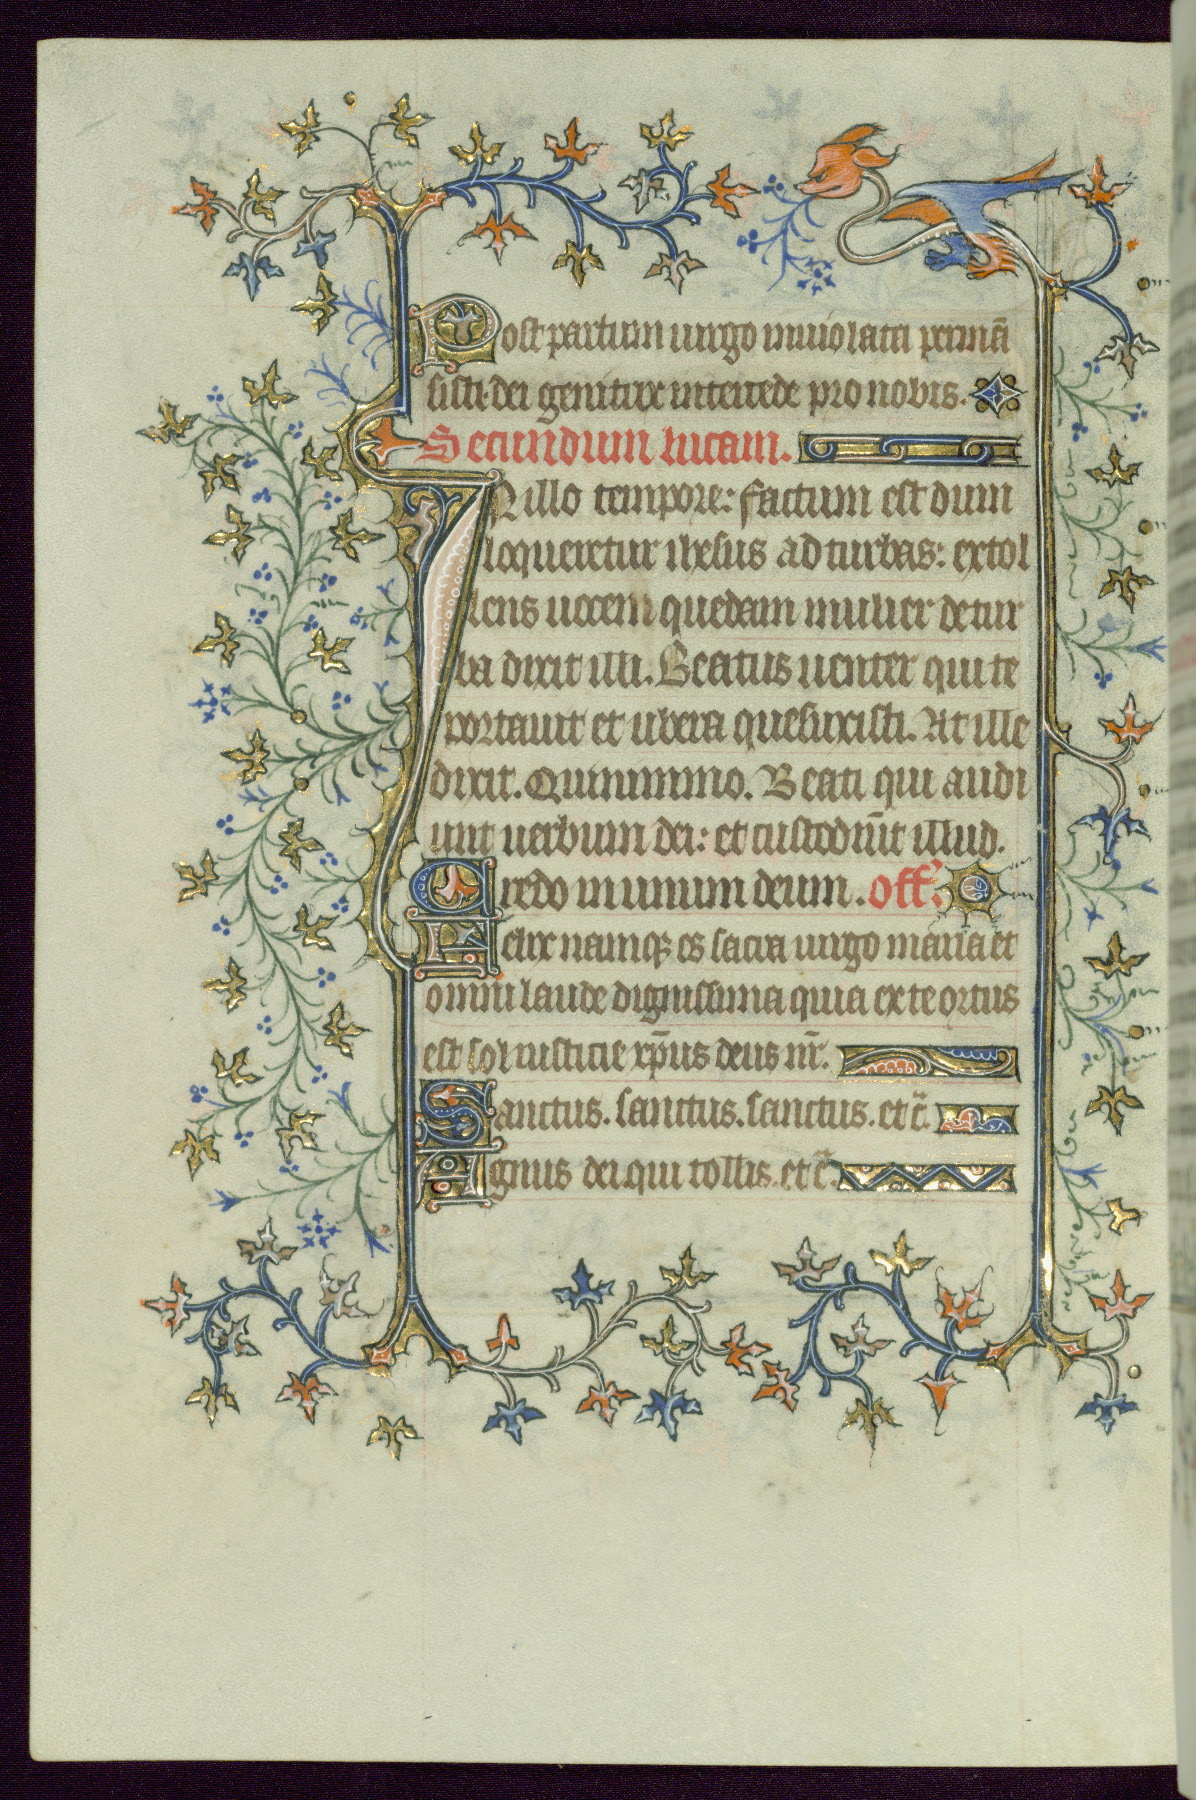 Post partum uirgo inuiolata permā
sisti. dei genitrix intercede pro nobis.
Secundum lucam.
In illo tempore: factum est dum
loqueretur ihesus ad turbas: extol
lens uocem quedam mulier de tur
ba dixit illi. Beatus uenter qui te
portauit et ubera que suxisti. At ille
dixit. Quinimmo. Beati qui audi
unt uerbum dei: et custodiūt illud.
Credo in unum deum. off̄.
Felix namqꝫ es sacra uirgo maria et
omni laude dignissima quia ex te ortus
est sol iusticie xp̄us deus nr̄.
Sanctus. sanctus. sanctus. et c̄.
Agnus dei. qui tollis. et c̄.